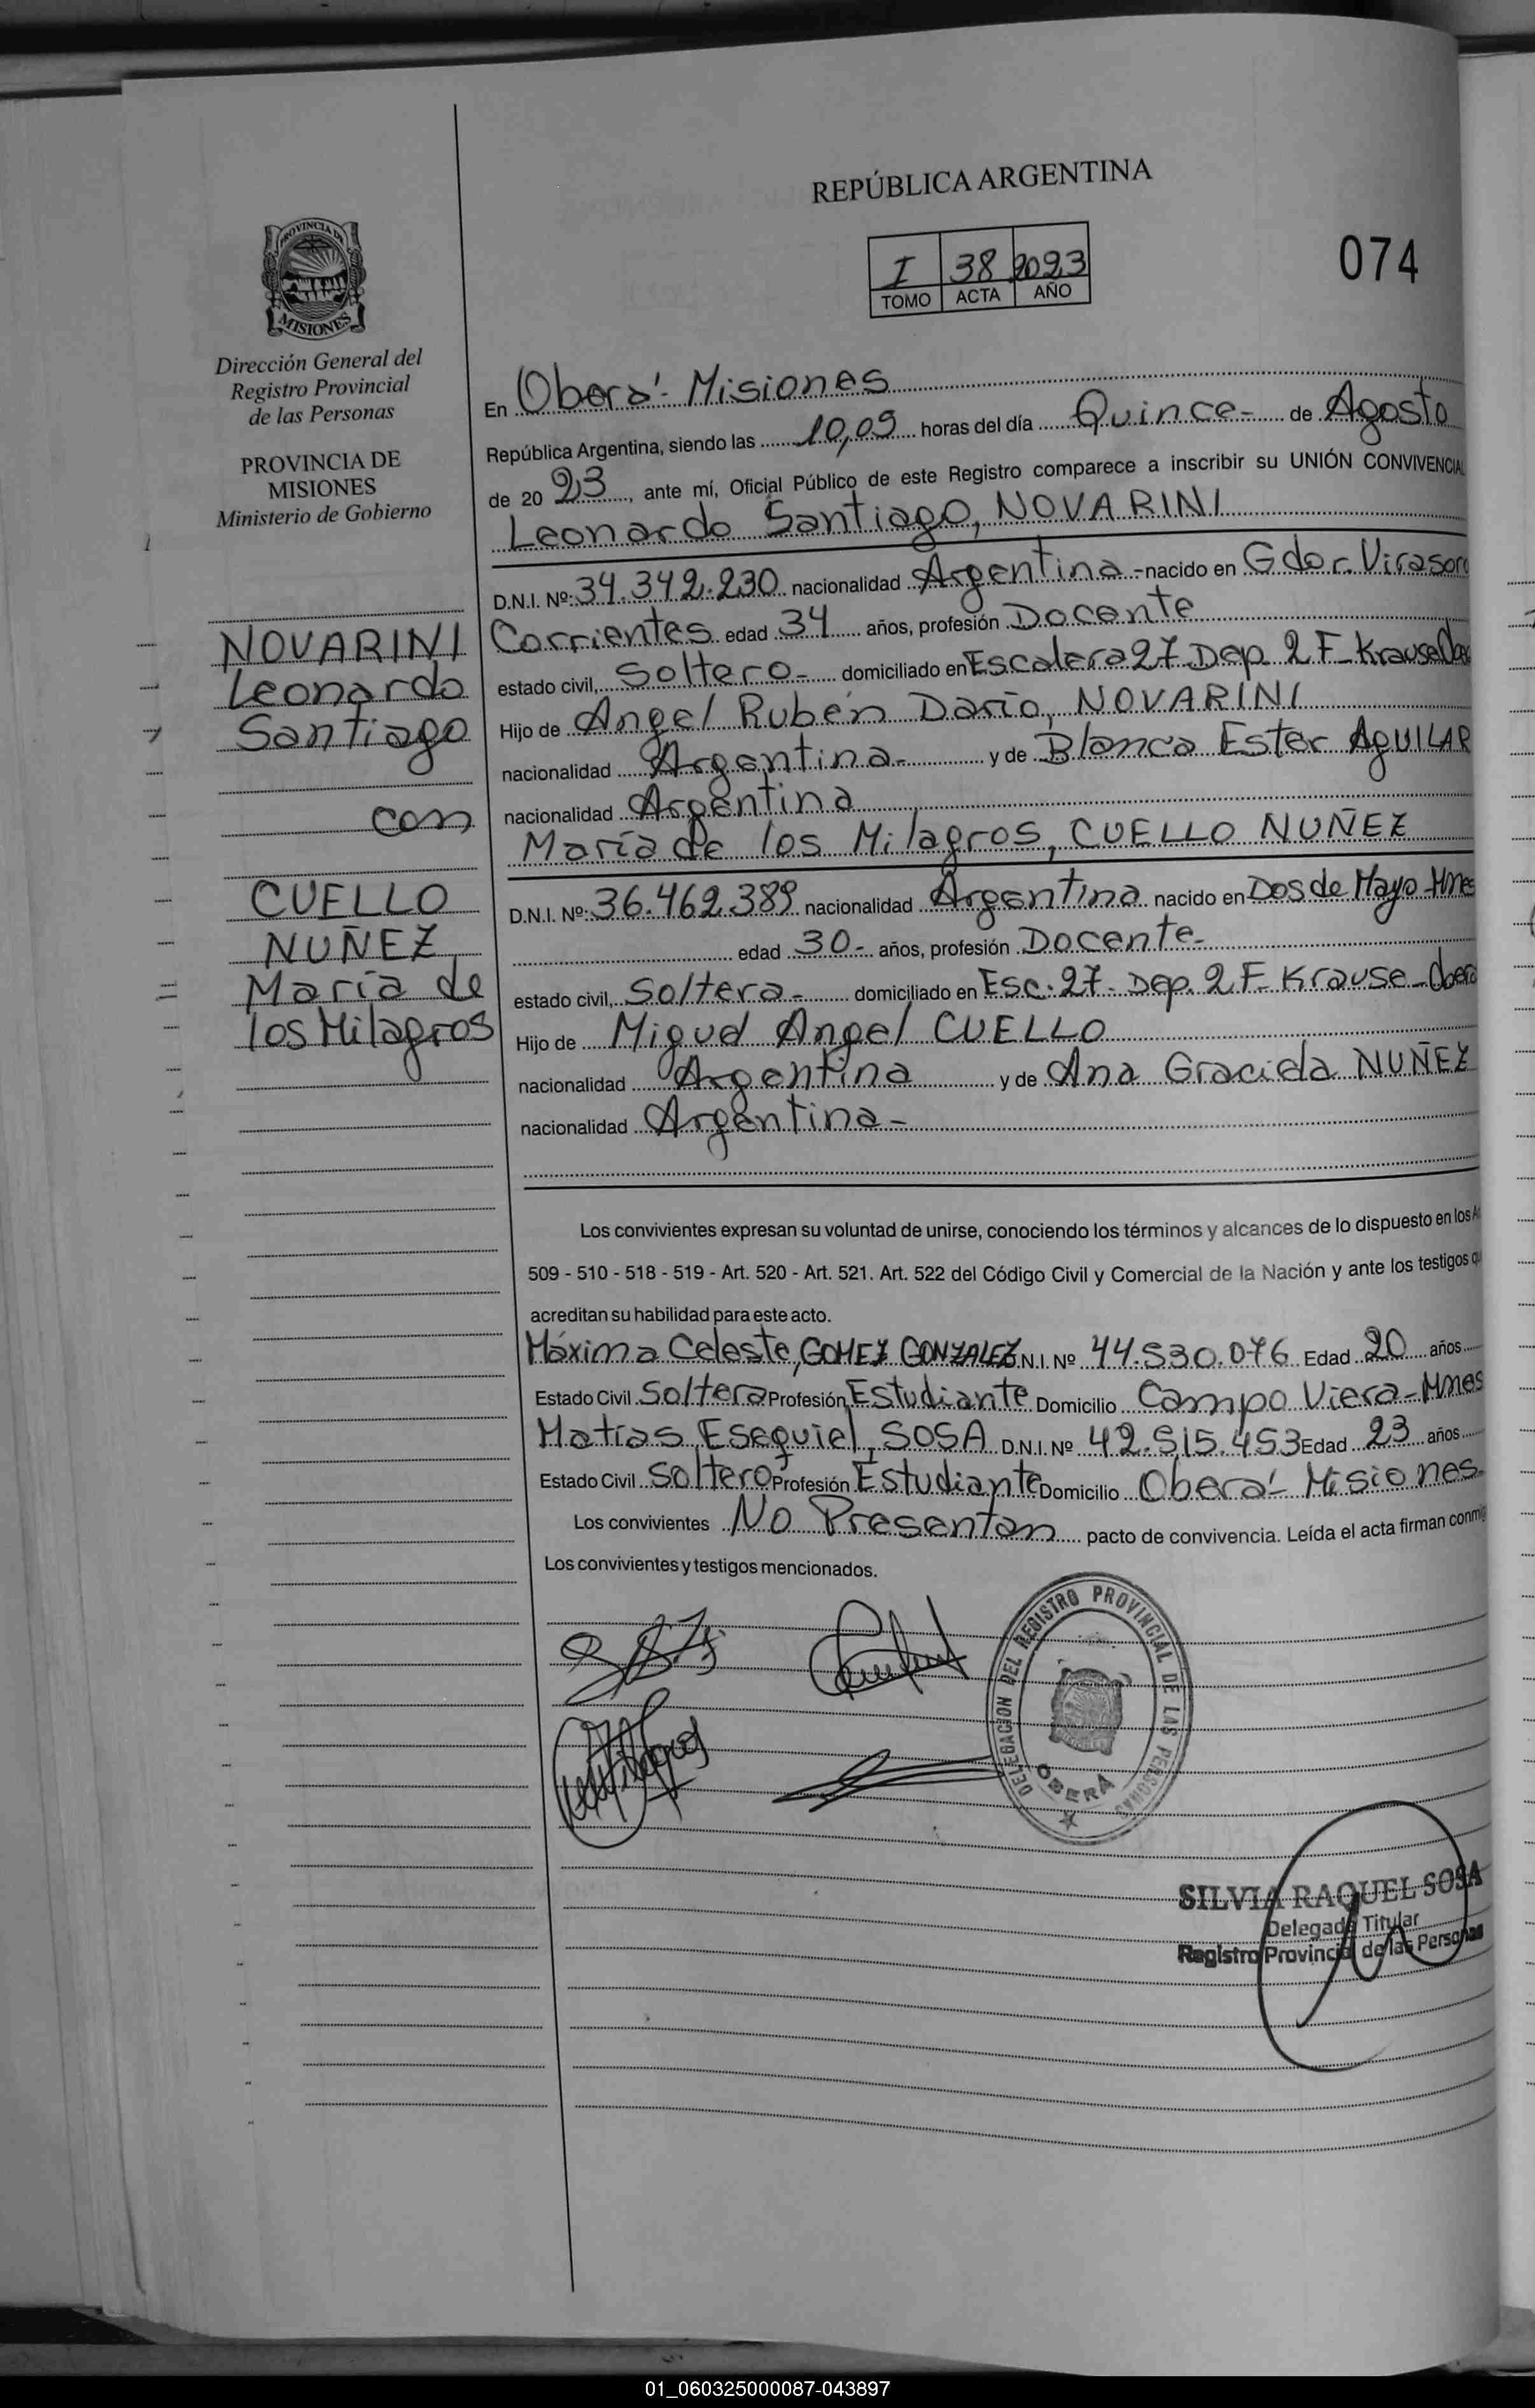 REPÚBLICA ARGENTINA
I 38 2023
TOMO ACTA AÑO
074
PROVINCIA DE
MISIONES
Dirección General del
Registro Provincial
de las Personas
PROVINCIA DE
MISIONES
Ministerio de Gobierno
NOVARINI
Leonardo
Santiago
con
CUELLO
NUÑEZ
María de
los Milagros
En Oberá - Misiones
República Argentina, siendo las 10,09 horas del día Quince - de Agosto
de 20 23, ante mí, Oficial Público de este Registro comparece a inscribir su UNIÓN CONVIVENCIAL
Leonardo Santiago, NOVARINI
D.N.I. Nº: 34.342.230 nacionalidad Argentina - nacido en Gdor. Virasoro
Corrientes edad 34 años, profesión Docente
estado civil, Soltero - domiciliado en Escalera 27 Dep. 2 F. Krause
Hijo de Angel Rubén Darío, NOVARINI
nacionalidad Argentina - y de Blanca Ester AGUILAR
nacionalidad Argentina
María de los Milagros, CUELLO NUÑEZ
D.N.I. Nº: 36.462.389 nacionalidad Argentina nacido en Dos de Mayo - Mnes
edad 30 - años, profesión Docente -
estado civil, Soltera - domiciliado en Esc. 27 - Dep. 2 F. Krause - Oberá
Hijo de Miguel Angel CUELLO
nacionalidad Argentina y de Ana Gracida NUÑEZ
nacionalidad Argentina -
Los convivientes expresan su voluntad de unirse, conociendo los términos y alcances de lo dispuesto en los
509 - 510 - 518 - 519 - Art. 520 - Art. 521. Art. 522 del Código Civil y Comercial de la Nación y ante los testigos
acreditan su habilidad para este acto.
Máxima Celeste, GOMEZ GONZALEZ N.I. Nº 44.530.076 Edad 20 años
Estado Civil Soltera Profesión Estudiante Domicilio Campo Viera - Mnes
Matías Esequiel, SOSA D.N.I. Nº 42.515.453 Edad 23 años
Estado Civil Soltero Profesión Estudiante Domicilio Oberá - Misiones
Los convivientes No Presentan pacto de convivencia. Leída el acta firman
Los convivientes y testigos mencionados.
DELEGACION DEL REGISTRO PROVINCIAL DE LAS PERSONAS
OBERÁ
SILVIA RAQUEL SOSA
Delegada Titular
Registro Provincial de las Personas
01_060325000087-043897